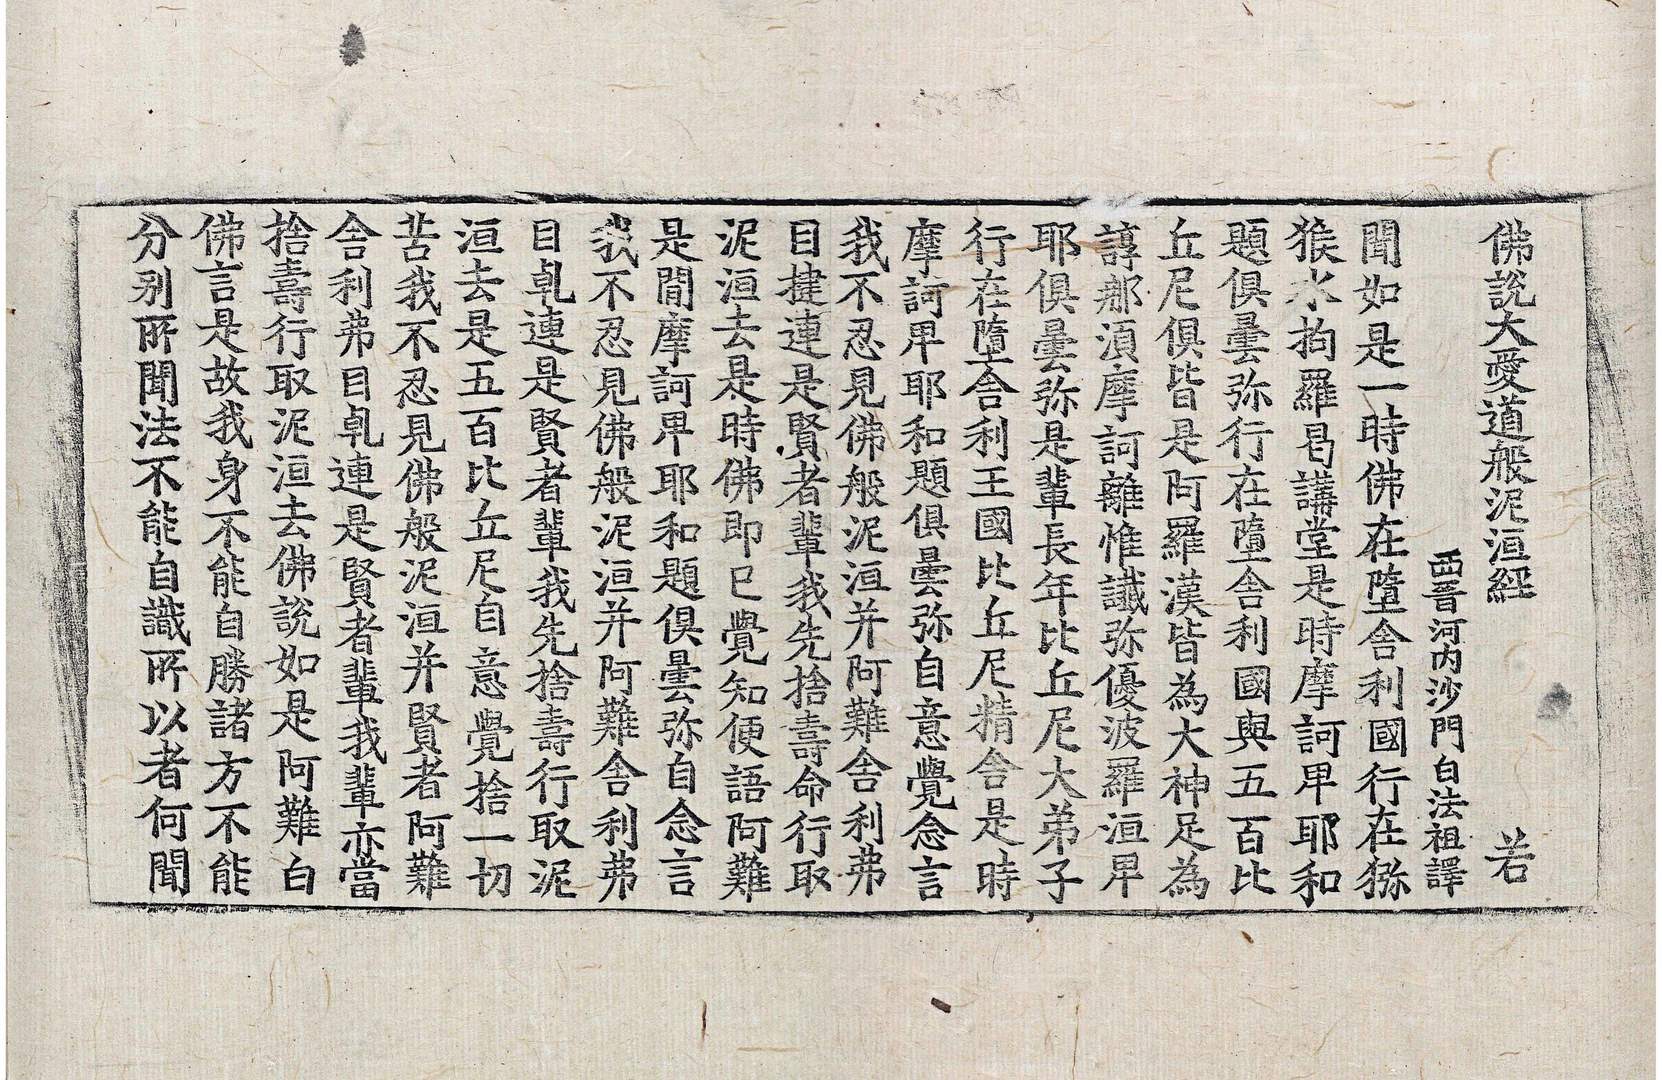 佛說大愛道般泥洹經 若
西晉河內沙門白法祖譯
聞如是一時佛在墮舍利國行在猕
猴水拘羅曷講堂是時摩訶卑耶和
題俱曇弥行在墮舍利國與五百比
丘尼俱皆是阿羅漢皆為大神足為
諄那湏摩訶離惟讖弥優波羅洹卑
耶俱曇弥是輩長年比丘尼大弟子
行在墮舍利王國比丘尼精舍是時
摩訶卑耶和題俱曇弥自意覺念言
我不忍見佛般泥洹并阿難舍利弗
目揵連是賢者輩我先捨壽命行取
泥洹去是時佛即已覺知便語阿難
是間摩訶卑耶和題俱曇弥自念言
我不忍見佛般泥洹并阿難舍利弗
目乹連是賢者輩我先捨壽行取泥
洹去是五百比丘尼自意覺捨一切
苦我不忍見佛般泥洹并賢者阿難
舍利弗目乹連是賢者輩我輩亦當
捨壽行取泥洹去佛說如是阿難白
佛言是故我身不能自勝諸方不能
分别所聞法不能自識所以者何聞